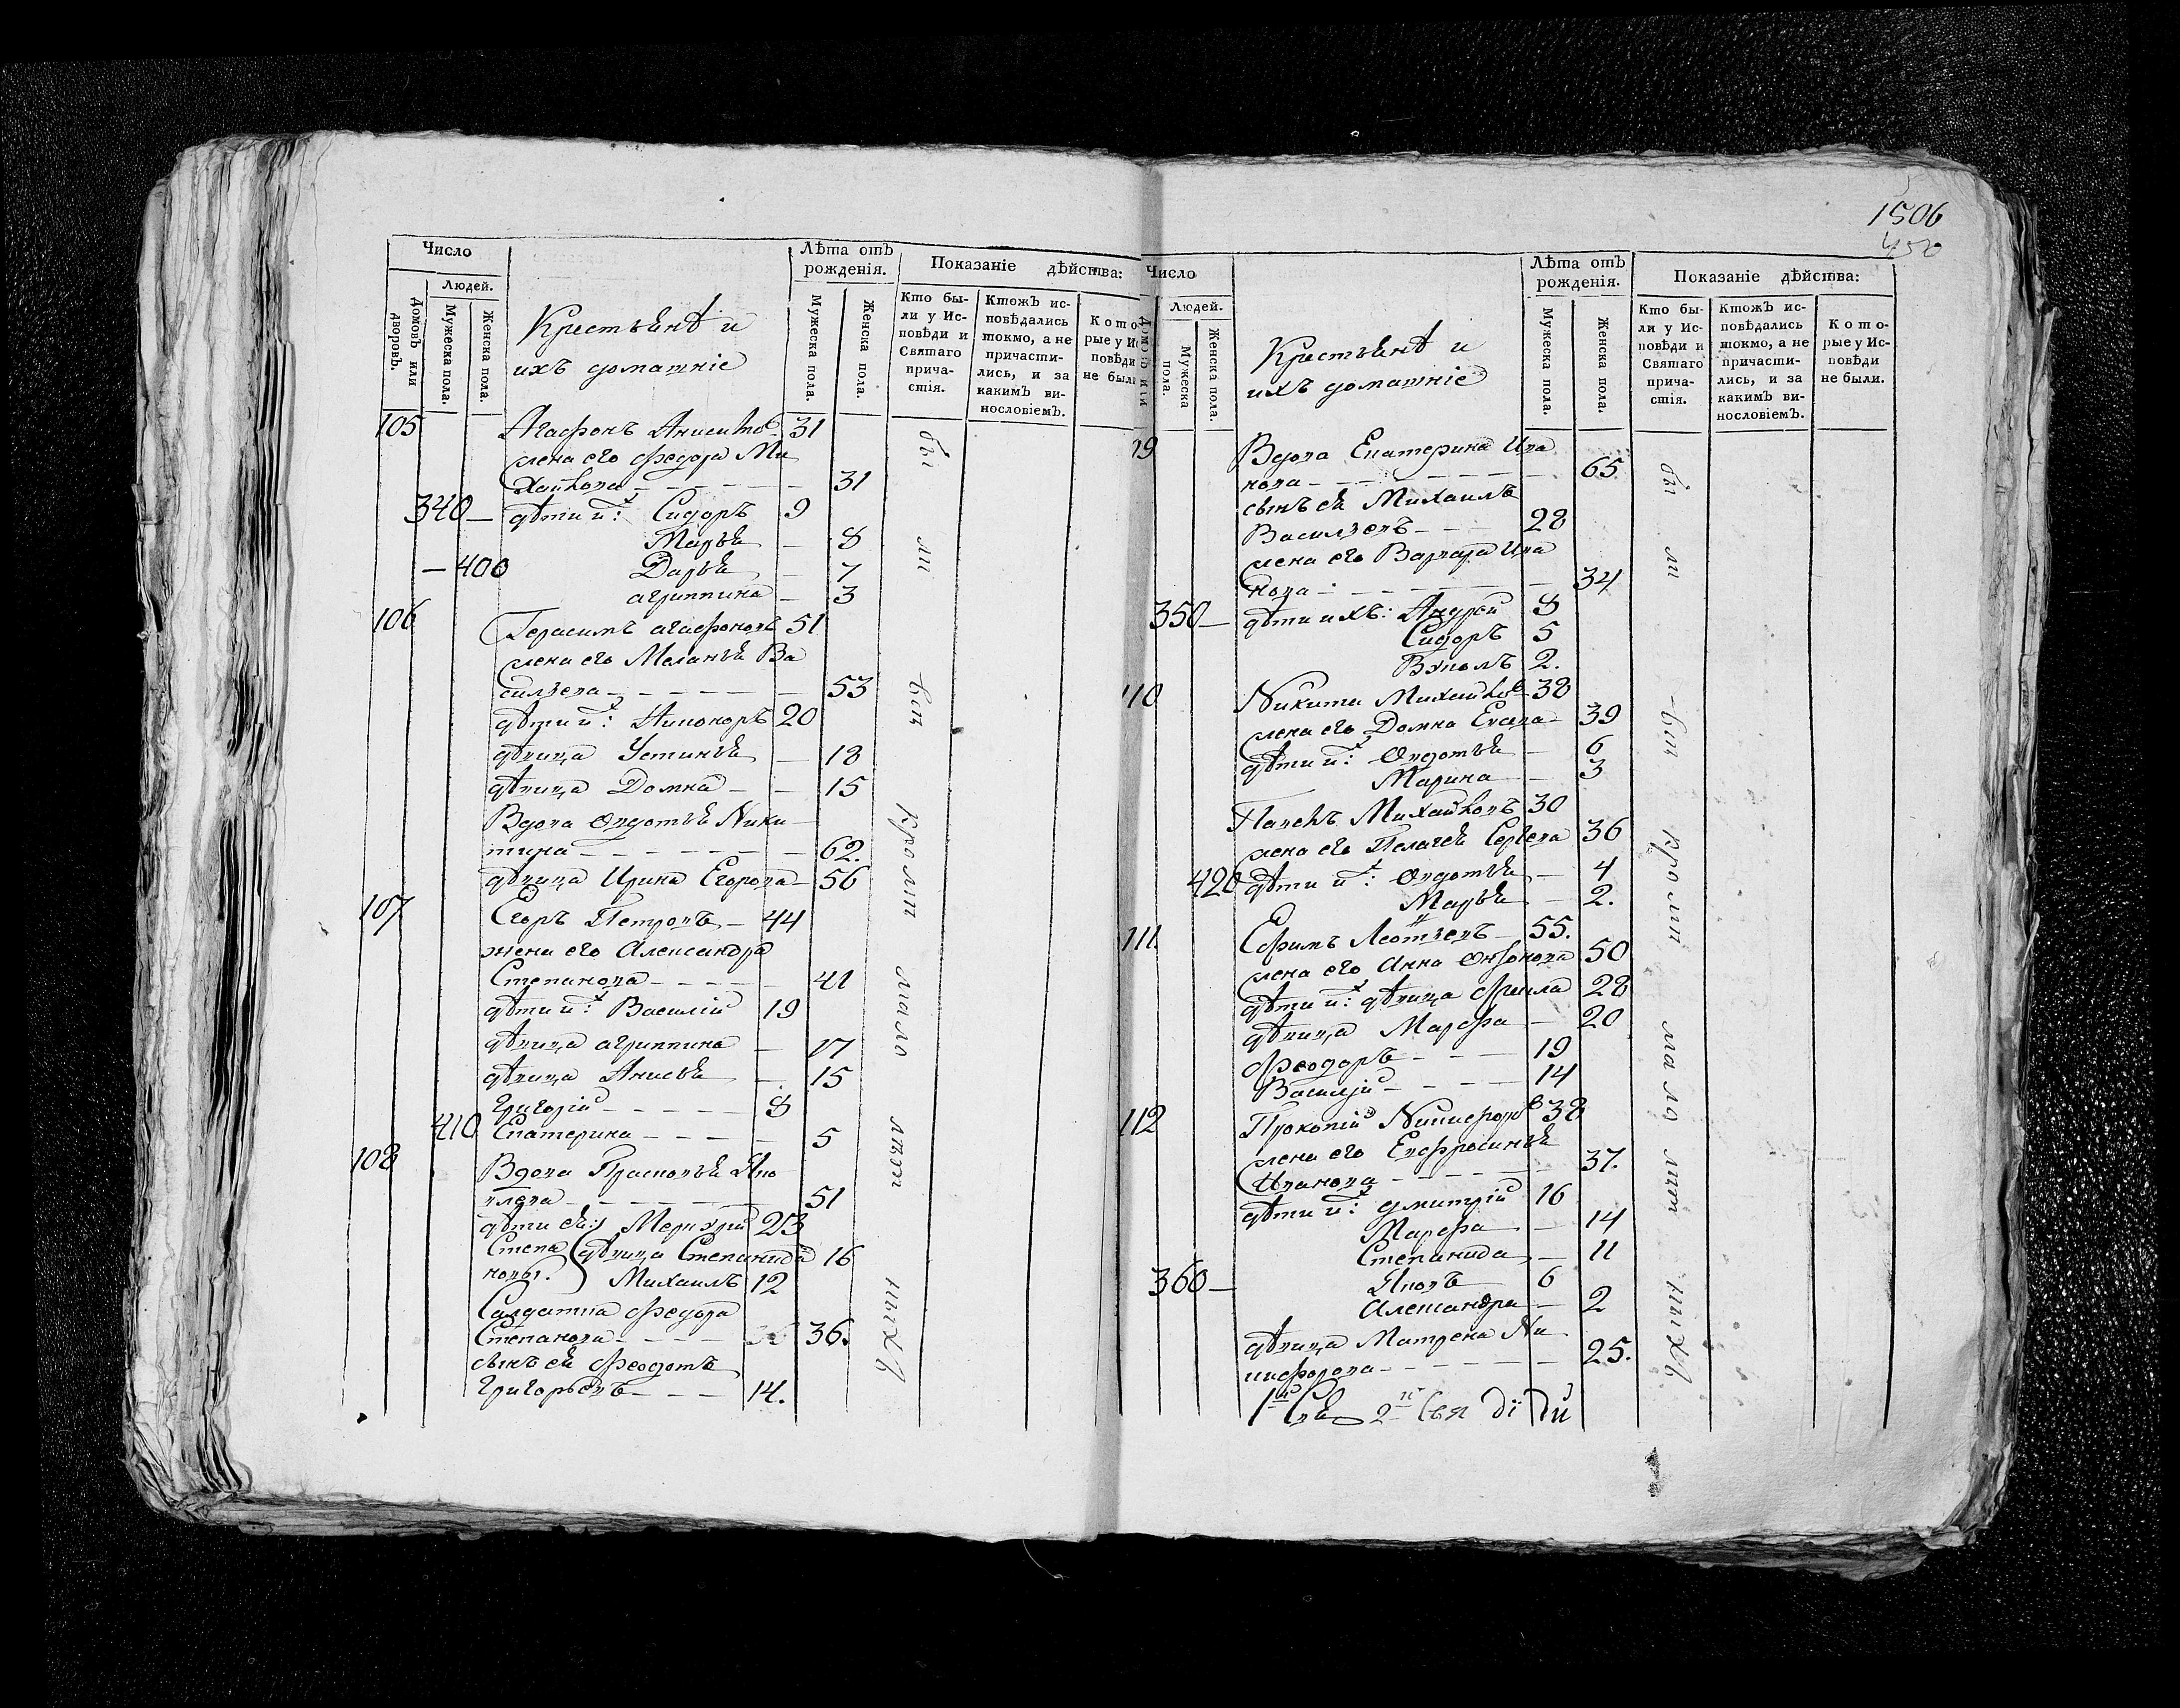 Число
Людей.
Домовъ или дворовъ.
Мужеска пола.
Женска пола.
Крестьянѣ и
ихъ домашніе
Лѣта отъ
рожденія.
Мужеска пола.
Женска пола.
Показаніе дѣйства:
Кто бы-
ли у Ис-
повѣди и
Святаго
прича-
стія.
Ктожъ ис-
повѣдались
токмо, а не
причасти-
лись, и за
какимъ ви-
нословіемъ.
Кото
рые у Ис
повѣди
не были
105 Агафонъ 31
жена его Федора Ми
хайлова 31
340 дѣти их: Сидоръ 9
Марья 8
400 Дарья 7
агриппина 3
106 Герасимъ агафоновъ 51
жена его Меланья Ва
сильева 53
дѣти их: Никоноръ 20
дѣвица Устинья 18
дѣвица Домна 15
Вдова Овдотья Ники
тина 62.
дѣвица Ирина Егорова 56
107 Егоръ Петровъ 44
жена его Александра
Степанова 41
дѣти их: Василій 19
дѣвица агриппина 17
дѣвица Анисья 15
Григорій 8
410 Екатерина 5
108 Вдова Прасковья Яко
влева 51
дѣти ея: 23
Степа дѣвица Степанида 16
новы. Михаилъ 12
Салдатка Федора
Степанова 36.
сынъ ея Феодотъ
Григорьевъ 14.
бы
ли
всѣ
кромѣ
мало
лѣт
ныхъ
1506
Число
Людей.
Мужеска
пола.
Женска пола.
Крестьянѣ и
ихъ домашніе
Лѣта отъ
рожденія.
Мужеска пола.
Женска пола.
Показаніе дѣйства:
Кто бы-
ли у Ис-
повѣди и
Святаго
прича-
стія.
Ктожъ ис-
повѣдались
токмо, а не
причасти-
лись, и за
какимъ ви-
нословіемъ.
Кото-
рые у Ис-
повѣди
не были.
Вдова Екатерина Ива
нова 65
сынъ ея Михаилъ
Васильевъ 28
жена его Варвара Ива
нова 34
350 дѣти ихъ: Андрей 8
Сидоръ 5
2.
110 Никита 38
жена его Домна 39
дѣти их: Овдотья 6
Марина 3
Павелъ Михайловъ 30
жена его Пелагея 36
420 дѣти их: Овдотья 4
Марья 2.
111 Ефимъ 55.
жена его Анна 50
дѣти их: дѣвица 28
дѣвица Марфа 20
Феодоръ 19
Василій 14
112 Прокопій Никифоровъ 38
жена его Евфросинья
Иванова 37.
дѣти их: дмитрій 16
Марфа 14
Степанида 11
360 Яковъ 6
Александра 2
дѣвица Матрена Ни
кифорова 25.
бы
ли
всѣ
кромѣ
мало
лѣт
ныхъ